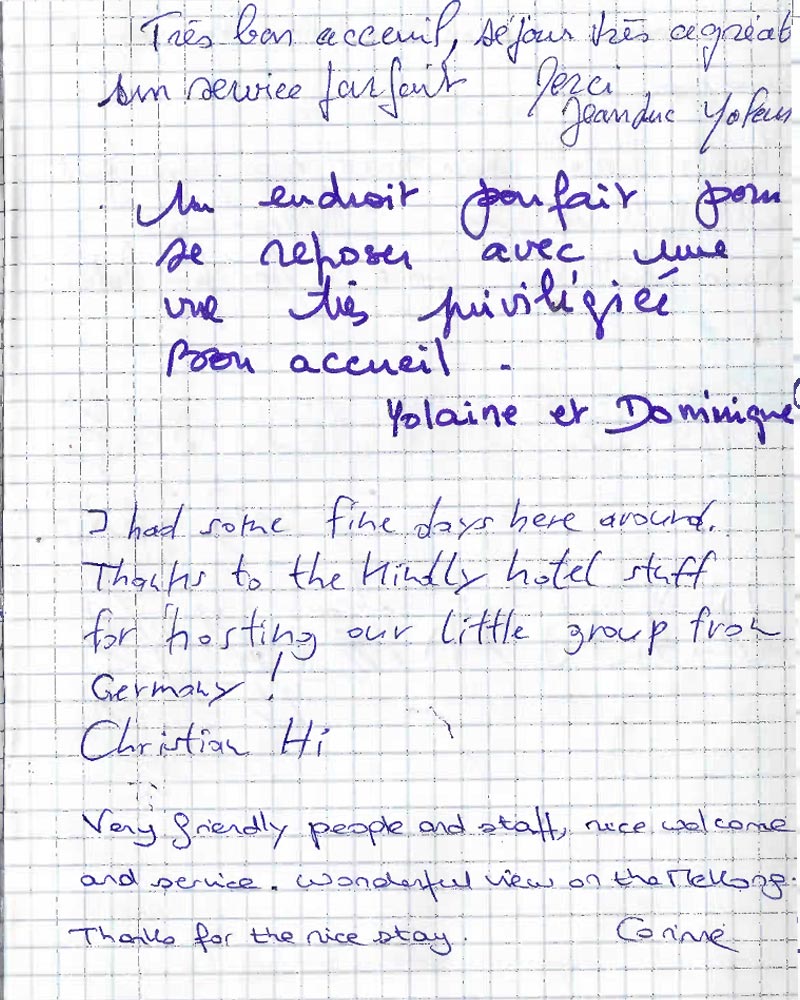 Très bon acceuil, séjour très agréab
un service parfait Merci
Jeanduc Yolain
Un endroit parfait pour
se reposer avec une
vue très privilégiée
Bon accueil .
Yolaine et Dominique
I had some fine days here around.
Thanks to the kindly hotel staff
for hosting our little group from
Germany!
Christian Hi
Very friendly people and staff, nice welcome
and service. Wonderful view on the Mekong.
Thanks for the nice stay. Corinne